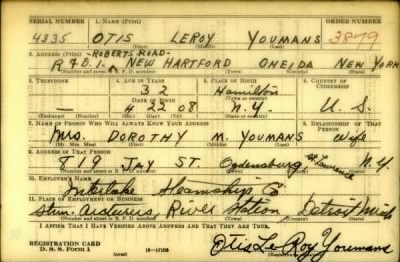 SERIAL NUMBER 1. NAME (Print) ORDER NUMBER
4335 OTIS LEROY YOUMANS 3879
(First) (Middle) (Last)
2. ADDRESS (Print) -ROBERTS-ROAD-
R.F.D.1. NEW HARTFORD ONEIDA NEW YORK
(Number and street or R. F. D. number) (Town) (County) (State)
3. TELEPHONE 4. AGE IN YEARS 5. PLACE OF BIRTH 6. COUNTRY OF CITIZENSHIP
32 Hamilton
DATE OF BIRTH (Town or county)
— 4 22 08 N.Y. U. S.
(Mo.) (Day) (Yr.) (State or country)
7. NAME OF PERSON WHO WILL ALWAYS KNOW YOUR ADDRESS 8. RELATIONSHIP OF THAT PERSON
Mrs. DOROTHY M. YOUMANS Wife
(Mr., Mrs., Miss) (First) (Middle) (Last)
9. ADDRESS OF THAT PERSON
719 JAY ST. Ogdensburg St Lawrence N.Y.
(Number and street or R. F. D. number) (Town) (County) (State)
10. EMPLOYER'S NAME
Interlake Steamship Co
11. PLACE OF EMPLOYMENT OR BUSINESS
River Station Detroit Mich
(Number and street or R. F. D. number) (Town) (County) (State)
I AFFIRM THAT I HAVE VERIFIED ABOVE ANSWERS AND THAT THEY ARE TRUE.
REGISTRATION CARD
D. S. S. Form 1 (over) Otis Le Roy Youmans